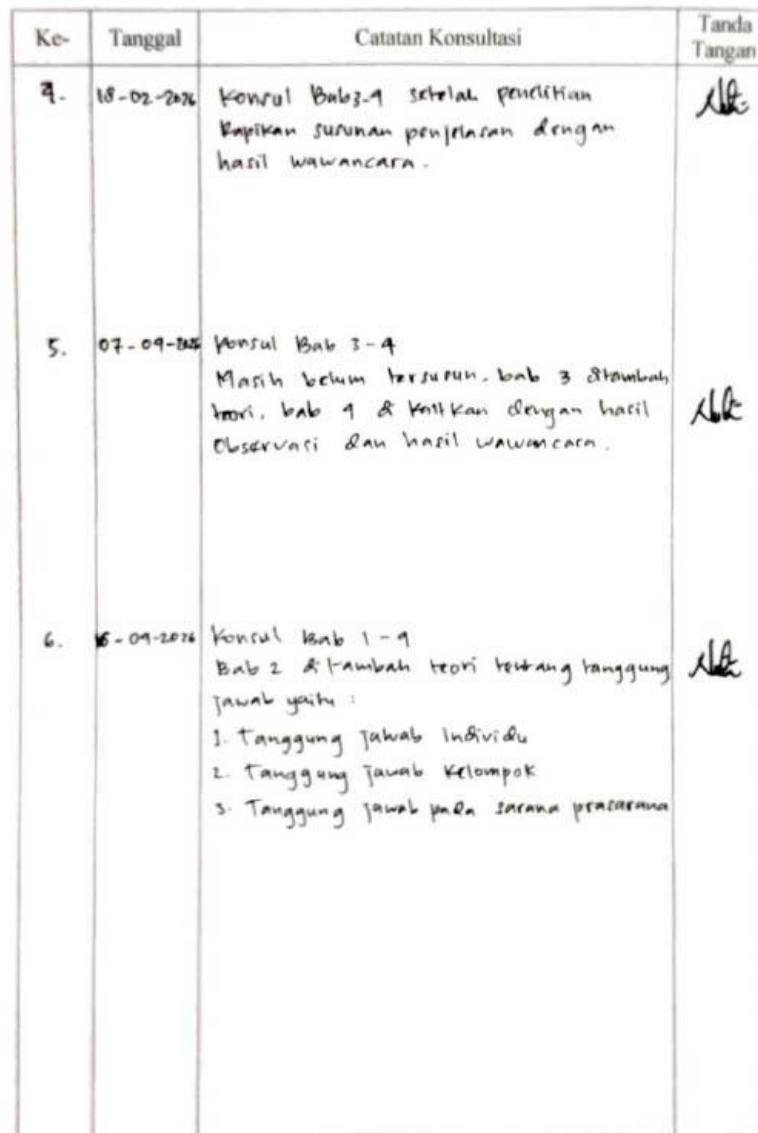 Ke- Tanggal Catatan Konsultasi Tanda Tangan
4. 18-02-2026 Konsul Bab 3-4 setelah penelitian
Rapikan susunan penjelasan dengan
hasil wawancara.
5. 07-04-2026 Konsul Bab 3-4
Masih belum tersusun. bab 3 ditambah
teori. bab 4 di kaitkan dengan hasil
Observasi dan hasil wawancara.
6. -04-2026 Konsul Bab 1-4
Bab 2 ditambah teori tentang tanggung
jawab yaitu :
1. Tanggung Jawab Individu
2. Tanggung Jawab Kelompok
3. Tanggung jawab pada sarana prasarana